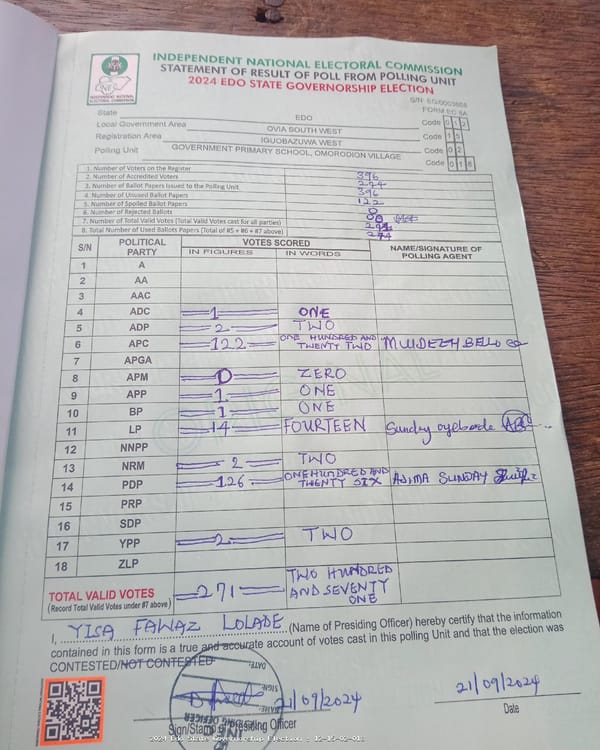 INDEPENDENT NATIONAL ELECTORAL COMMISSION
STATEMENT OF RESULT OF POLL FROM POLLING UNIT
2024 EDO STATE GOVERNORSHIP ELECTION
FORM EC 8A
State EDO Code 0 1 2
Local Government Area OVIA SOUTH WEST Code 1 5
Registration Area IGUOBAZUWA WEST Code 0 2
Polling Unit GOVERNMENT PRIMARY SCHOOL, OMORODION VILLAGE Code 0 1 8
1. Number of Voters on the Register 396
2. Number of Accredited Voters 274
3. Number of Ballot Papers Issued to the Polling Unit 396
4. Number of Unused Ballot Papers 122
5. Number of Spoiled Ballot Papers 0
6. Number of Rejected Ballots
7. Number of Total Valid Votes (Total Valid Votes cast for all parties)
8. Total Number of Used Ballots Papers (Total of #5 + #6 + #7 above) 274
S/N POLITICAL PARTY VOTES SCORED NAME/SIGNATURE OF POLLING AGENT
IN FIGURES IN WORDS
1 A
2 AA
3 AAC
4 ADC 1 ONE
5 ADP 2 TWO
6 APC 122 ONE HUNDRED AND TWENTY TWO MUIDEEN BELLO
7 APGA
8 APM 0 ZERO
9 APP 1 ONE
10 BP 1 ONE
11 LP 14 FOURTEEN Sunday
12 NNPP
13 NRM 2 TWO
14 PDP 126 ONE HUNDRED AND TWENTY SIX SUNDAY
15 PRP
16 SDP
17 YPP 2 TWO
18 ZLP
TOTAL VALID VOTES 271 TWO HUNDRED AND SEVENTY ONE
(Record Total Valid Votes under #7 above)
I, YISA FAWAZ LOLADE (Name of Presiding Officer) hereby certify that the information
contained in this form is a true and accurate account of votes cast in this polling Unit and that the election was
CONTESTED/NOT CONTESTED
DATE:
SIGN:
NAME:
PRESIDING OFFICER
21/09/2024 21/09/2024
Sign/Stamp Presiding Officer Date